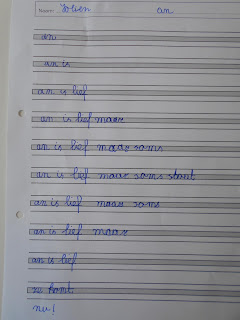 Naam: Jolien an
an
an is
an is lief
an is lief maar
an is lief maar soms
an is lief maar soms stout
an is lief maar soms
an is lief maar
an is lief
ze komt
nu!